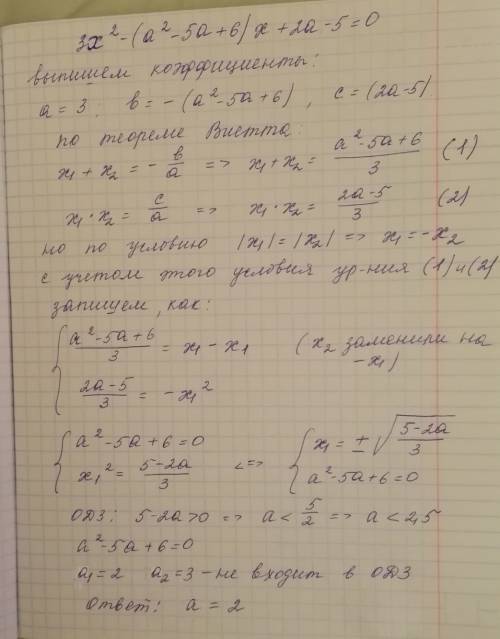 3x² - (a² - 5a + 6)x + 2a - 5 = 0
выпишем коэффициенты:
a = 3; в = - (a² - 5a + 6), c = (2a - 5)
по теореме Виетта:
x₁ + x₂ = - в/a => x₁ + x₂ = (a² - 5a + 6)/3 (1)
x₁ · x₂ = c/a => x₁ · x₂ = (2a - 5)/3 (2)
но по условию |x₁| = |x₂| => x₁ = -x₂
с учетом этого условия ур-ния (1) и (2)
запишем, как:
{ (a² - 5a + 6)/3 = x₁ - x₁ (x₂ заменили на -x₁)
(2a - 5)/3 = -x₁²
{ a² - 5a + 6 = 0 <=> { x₁ = ± √((5 - 2a)/3)
x₁² = (5 - 2a)/3 a² - 5a + 6 = 0
ОДЗ: 5 - 2a > 0 => a < 5/2 => a < 2,5
a² - 5a + 6 = 0
a₁ = 2 a₂ = 3 - не входит в ОДЗ
Ответ: a = 2